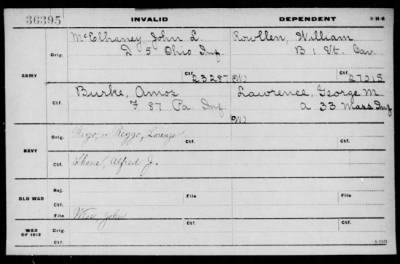 36395 INVALID DEPENDENT 3-1044
McElhaney, John L. Rowllen, William
Orig. D 5 Ohio Inf. B 1 Vt. Cav.
ARMY Ctf. 23287 (W) Ctf. 27215
Burke, Amos Lawrence, George M.
Ctf. F 87 Pa Inf A 33 Mass Inf
(W)
Orig. Rigo, or Reggo, Lorenzo
NAVY
Ctf. Alfred J.
Rej. Ctf.
OLD WAR File File
Ctf. West, John
WAR OF 1812 Orig. Ctf. Ctf.
Ctf.